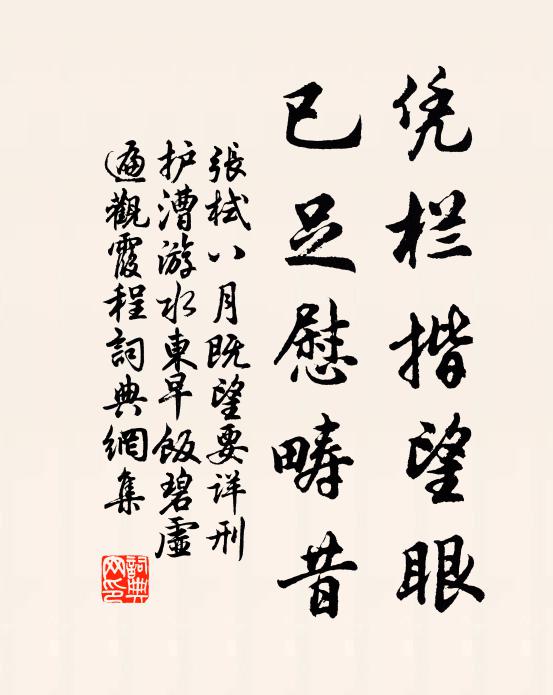 凭栏揩望眼
已足慰畴昔
張栻八月既望要详刑
护漕游水東早飯碧虛
遍觀霞程詞典網集
詞典网印